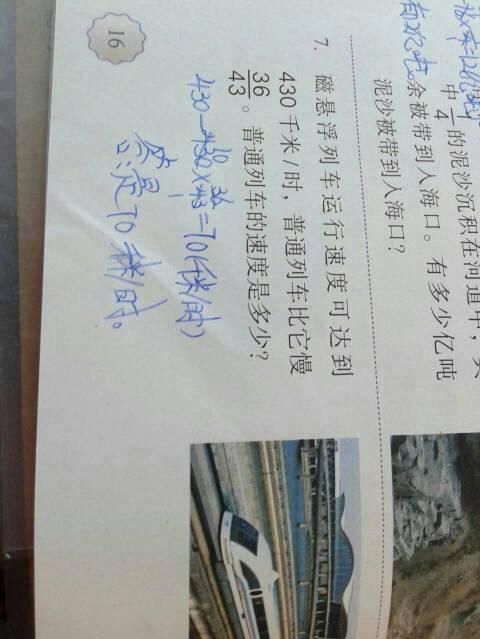 中1/4的泥沙沉积在河道中,其
余被带到入海口。有多少亿吨
泥沙被带到入海口?
7. 磁悬浮列车运行速度可达到
430 千米/时,普通列车比它慢
36/43。普通列车的速度是多少?
430-430×36/43=70(千米/时)
答:是70千米/时。
16